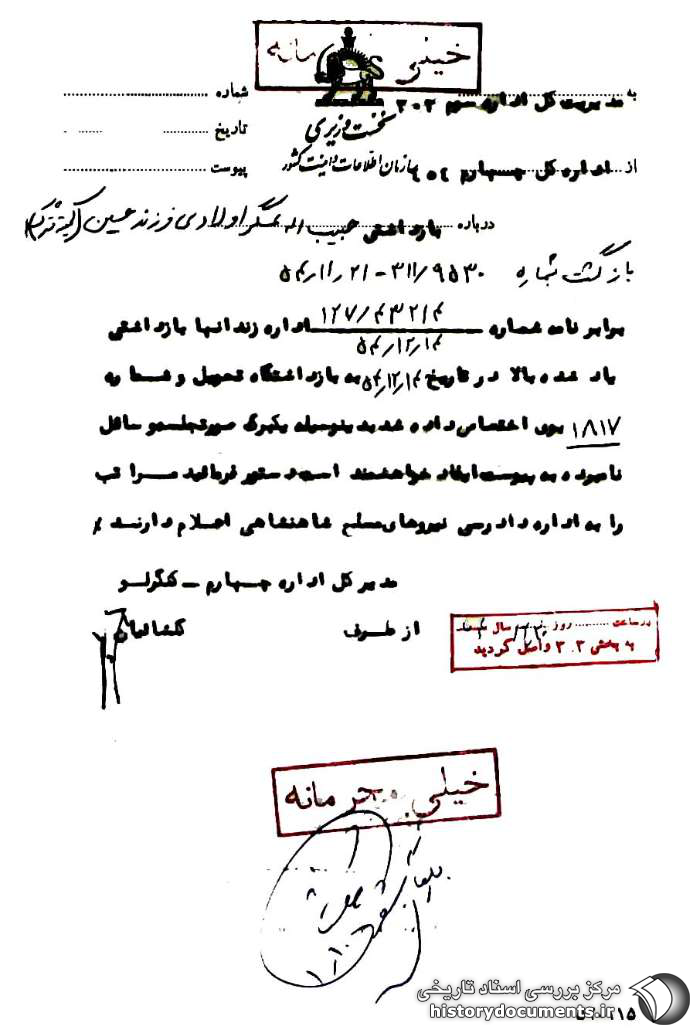 خیلی محرمانه
به مدیریت کل اداره سوم ۳۰۲
شماره
نخست وزیری
تاریخ
سازمان اطلاعات و امنیت کشور
از اداره کل چهارم ۴۵۲
پیوست
درباره بازداشتی حبیب اله عسگراولادی فرزند حسین
بازگشت بشماره ۳۱۱/۹۵۳۰ - ۵۴/۱۱/۲۱
برابر نامه شماره ۱۲۷/۴۳۲۱۴ اداره زندانها بازداشتی
۵۴/۱۲/۱۴
یاد شده بالا در تاریخ ۵۴/۱۲/۱۴ به بازداشتگاه تحویل و شماره
۱۸۱۷ بوی اختصاص داده شد بدینوسیله یکبرگ صورتجلسه وسائل
نامبرده به پیوست ایفاد خواهشمند است دستور فرمائید مراتب
را به اداره دادرسی نیروهای مسلح شاهنشاهی اعلام دارند
مدیر کل اداره چهارم - کنگرلو
از طرف
در ساعت روز سال
به بخش ۳۰۲ واصل گردید
خیلی محرمانه
مرکز بررسی اسناد تاریخی
historydocuments.ir